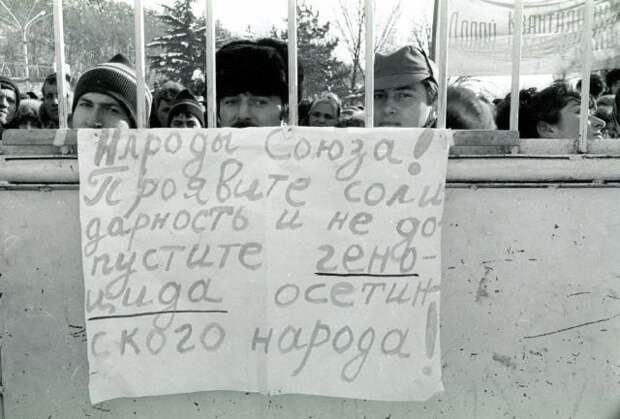 Долой
Народы Союза!
Проявите соли
дарность и не до-
пустите гено-
цида осетин-
ского народа!